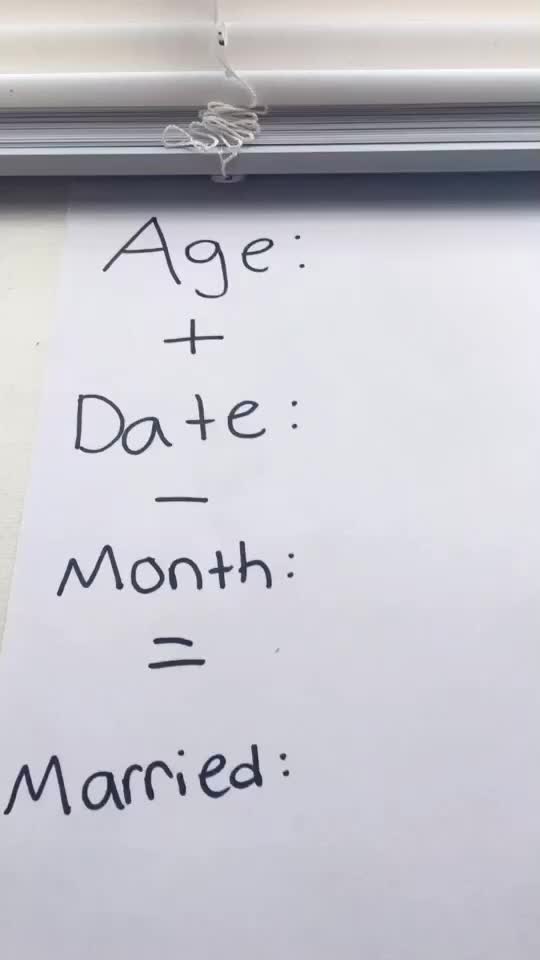 Age:
+
Date:
-
Month:
=
Married: